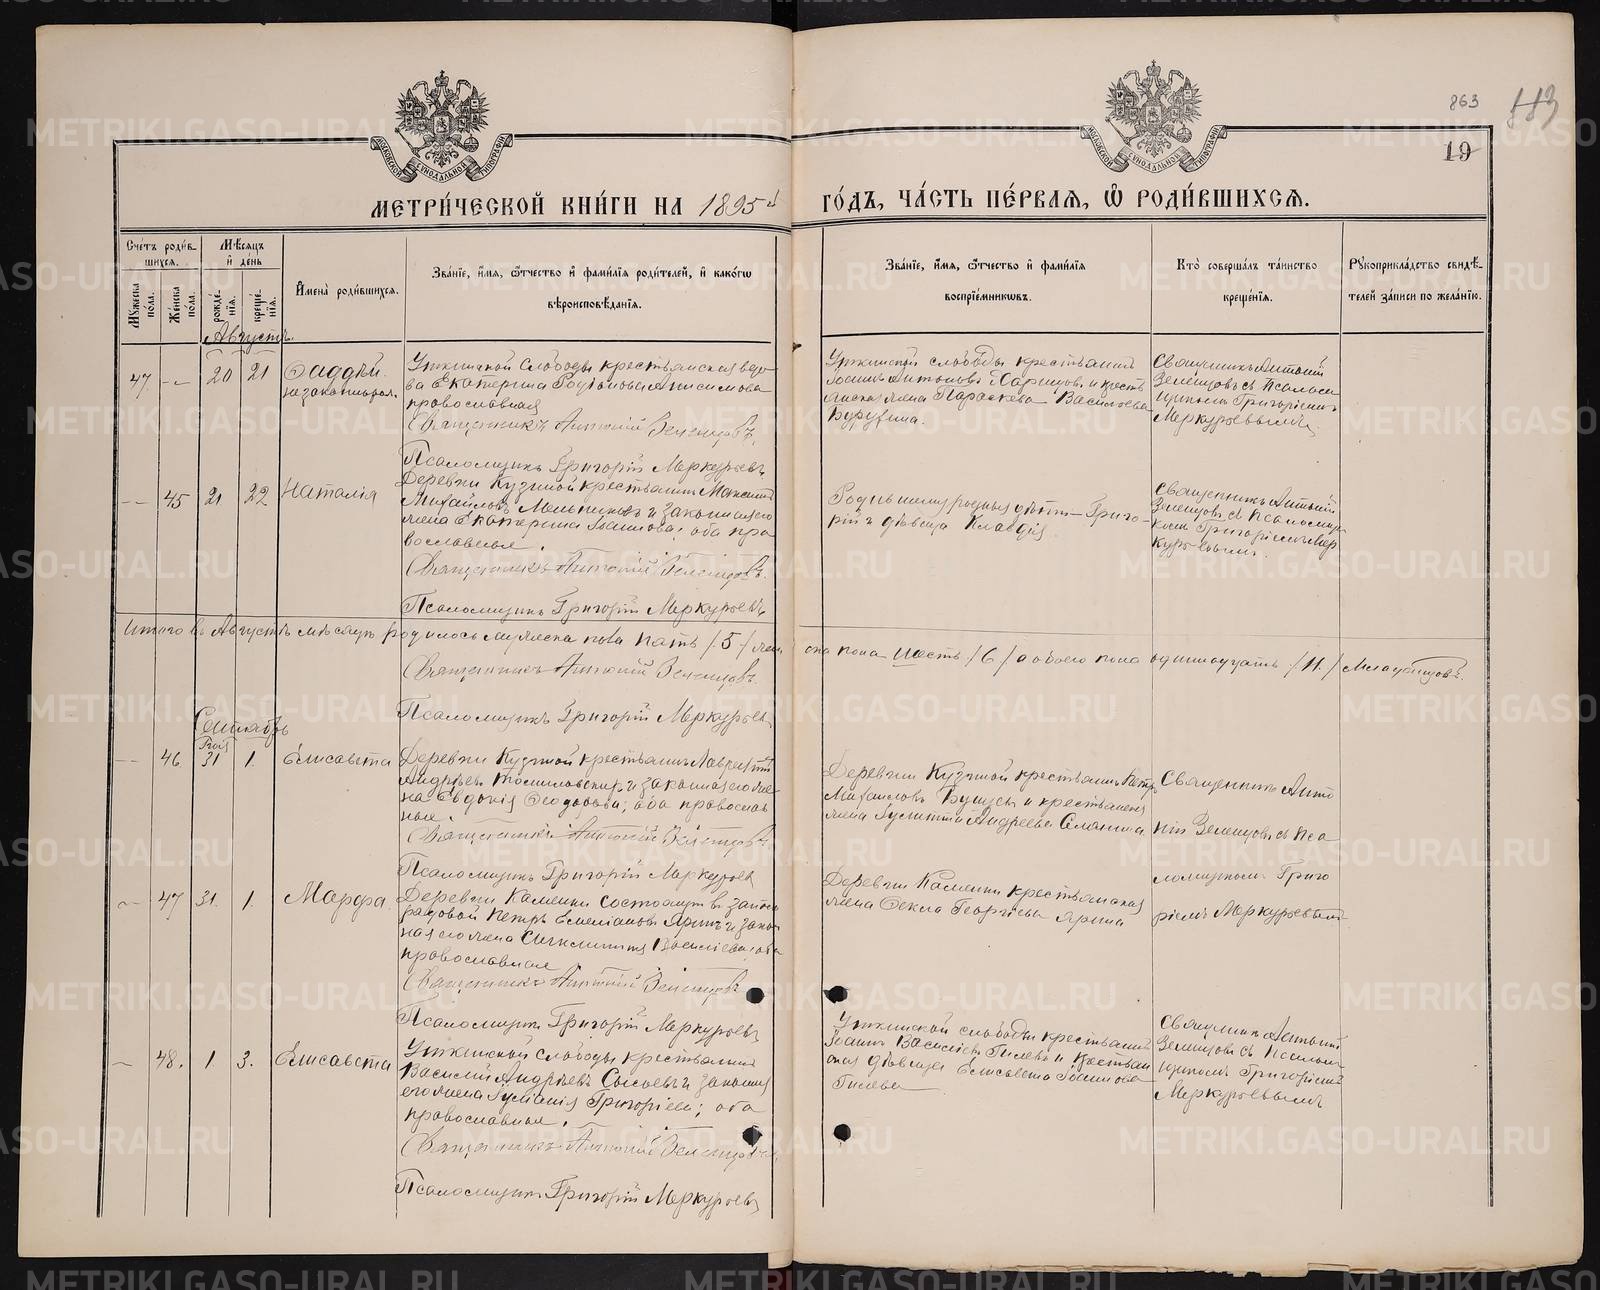 863
113
19
МЕТРИ́ЧЕСКОЙ КНИ́ГИ НА 1895й ГО́ДЪ, ЧА́СТЬ ПЕ́РВАЯ, Ѡ РОДИ́ВШИХСЯ.
Сче́тъ роди́вшихся.
Мѣсяцъ и де́нь
Имена̀ роди́вшихся.
Зва́нїе, и́мя, ѻ́тчество и фами́лїя роди́телей, и како́гѡ вѣроисповѣ́данїя.
Зва́нїе, и́мя, ѻ́тчество и фами́лїя воспрїе́мниковъ.
Кто̀ соверша́лъ та́инство креще́нїя.
Рꙋкоприкла́дство свидѣ́телей за́писи по жела́нїю.
Мꙋжеска пола.
Же́нска пола.
рожде́нїя.
креще́нїя.
Августъ.
47 -- 20 21 Ѳаддѣй незаконнорож.
Уткинской Слободы крестьянская вдова Екатерина Родіонова Анисимова православная
Священникъ Антоній Зеленцовъ.
Псаломщикъ Григорій Меркурьевъ
Уткинской слободы крестьянинъ
Іоаннъ Антоновъ Харинъ и крестьянская жена Параскева Васильева
Священникъ Антоній Зеленцовъ съ Псаломщикомъ Григоріемъ Меркурьевымъ
-- 45 21 22 Наталія
Деревни Кузиной крестьянинъ Максимъ
Михайловъ Мельниковъ и законная его
жена Екатерина Іоаннова; оба православные.
Священникъ Антоній Зеленцовъ.
Псаломщикъ Григорій Меркурьевъ
Родившему родныя дѣти – Григорій и дѣвица Клавдія
Священникъ Антоній Зеленцовъ съ Псаломщикомъ Григоріемъ Меркурьевымъ.
Итого въ Августѣ мѣсяцѣ родилось мужеска пола пять /5/ женска пола шесть /6/ а обоего пола одиннадцать /11/ младенцовъ.
Священникъ Антоній Зеленцовъ
Псаломщикъ Григорій Меркурьевъ
Сентябрь
-- 46 31 1. Елисавета
Деревни Кузиной крестьянинъ Лаврентій
Андреевъ и законная его жена Евдокія Ѳеодорова; оба православные.
Священникъ Антоній Зеленцовъ
Псаломщикъ Григорій Меркурьевъ
Деревни Кузиной крестьянинъ Петръ
Михаиловъ и крестьянская
жена Іулиттія Андреева
Священникъ Антоній Зеленцовъ съ Псаломщикомъ Григоріемъ Меркурьевымъ
-- 47 31. 1. Марѳа.
Деревни Каменки состоящій въ запасѣ
рядовой Петръ Емеліановъ Яринъ и законная его жена Синклитикія Васильева; оба
православные
Священникъ Антоній Зеленцовъ
Псаломщикъ Григорій Меркурьевъ
Деревни Каменки крестьянская
жена Ѳекла Георгіева Ярина
-- 48. 1. 3. Елисавета
Уткинской слободы крестьянинъ
Василій Андреевъ Сысоевъ и законная
его жена Іуліанія Григоріева; оба
православные.
Священникъ Антоній Зеленцовъ
Псаломщикъ Григорій Меркурьевъ
Уткинской слободы крестьянинъ
Іоаннъ Васильевъ Гилевъ и крестьянская дѣвица Елисавета Іоаннова
Гилева
Священникъ Антоній
Зеленцовъ съ Псаломщикомъ Григоріемъ
Меркурьевымъ
METRIKI.GASO-URAL.RU